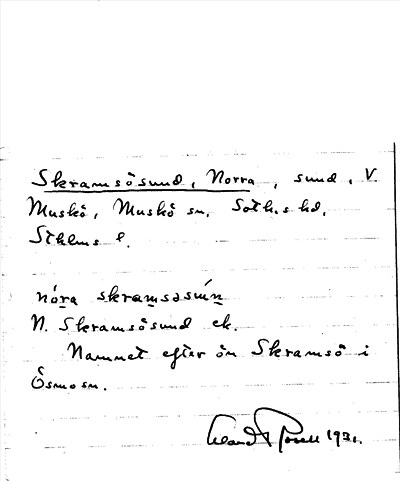 Skramsösund, Norra, sund, V
Muskö, Muskö sn, Soth.s hd,
Sthlms l.
nó̱ra skramsəsún
N. Skramsösund ek.
Namnet efter ön Skramsö i
Ösmo sn.
1931.